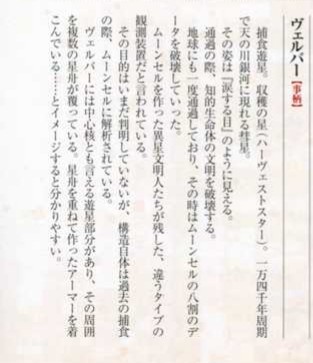 ヴェルバー【事柄】
捕食遊星。収穫の星(ハーヴェストスター)。一万四千年周期
で天の川銀河に現れる彗星。
その姿は『涙する目』のように見える。
通過の際、知的生命体の文明を破壊する。
地球にも一度通過しており、その時はムーンセルの八割のデ
ータを破壊していった。
ムーンセルを作った異星文明人たちが残した、違うタイプの
観測装置だと言われている。
その目的はいまだ判明していないが、構造自体は過去の捕食
の際、ムーンセルに解析されている。
ヴェルバーには中心核とも言える遊星部分があり、その周囲
を複数の星舟が覆っている。星舟を重ねて作ったアーマーを着
こんでいる……とイメージすると分かりやすい。